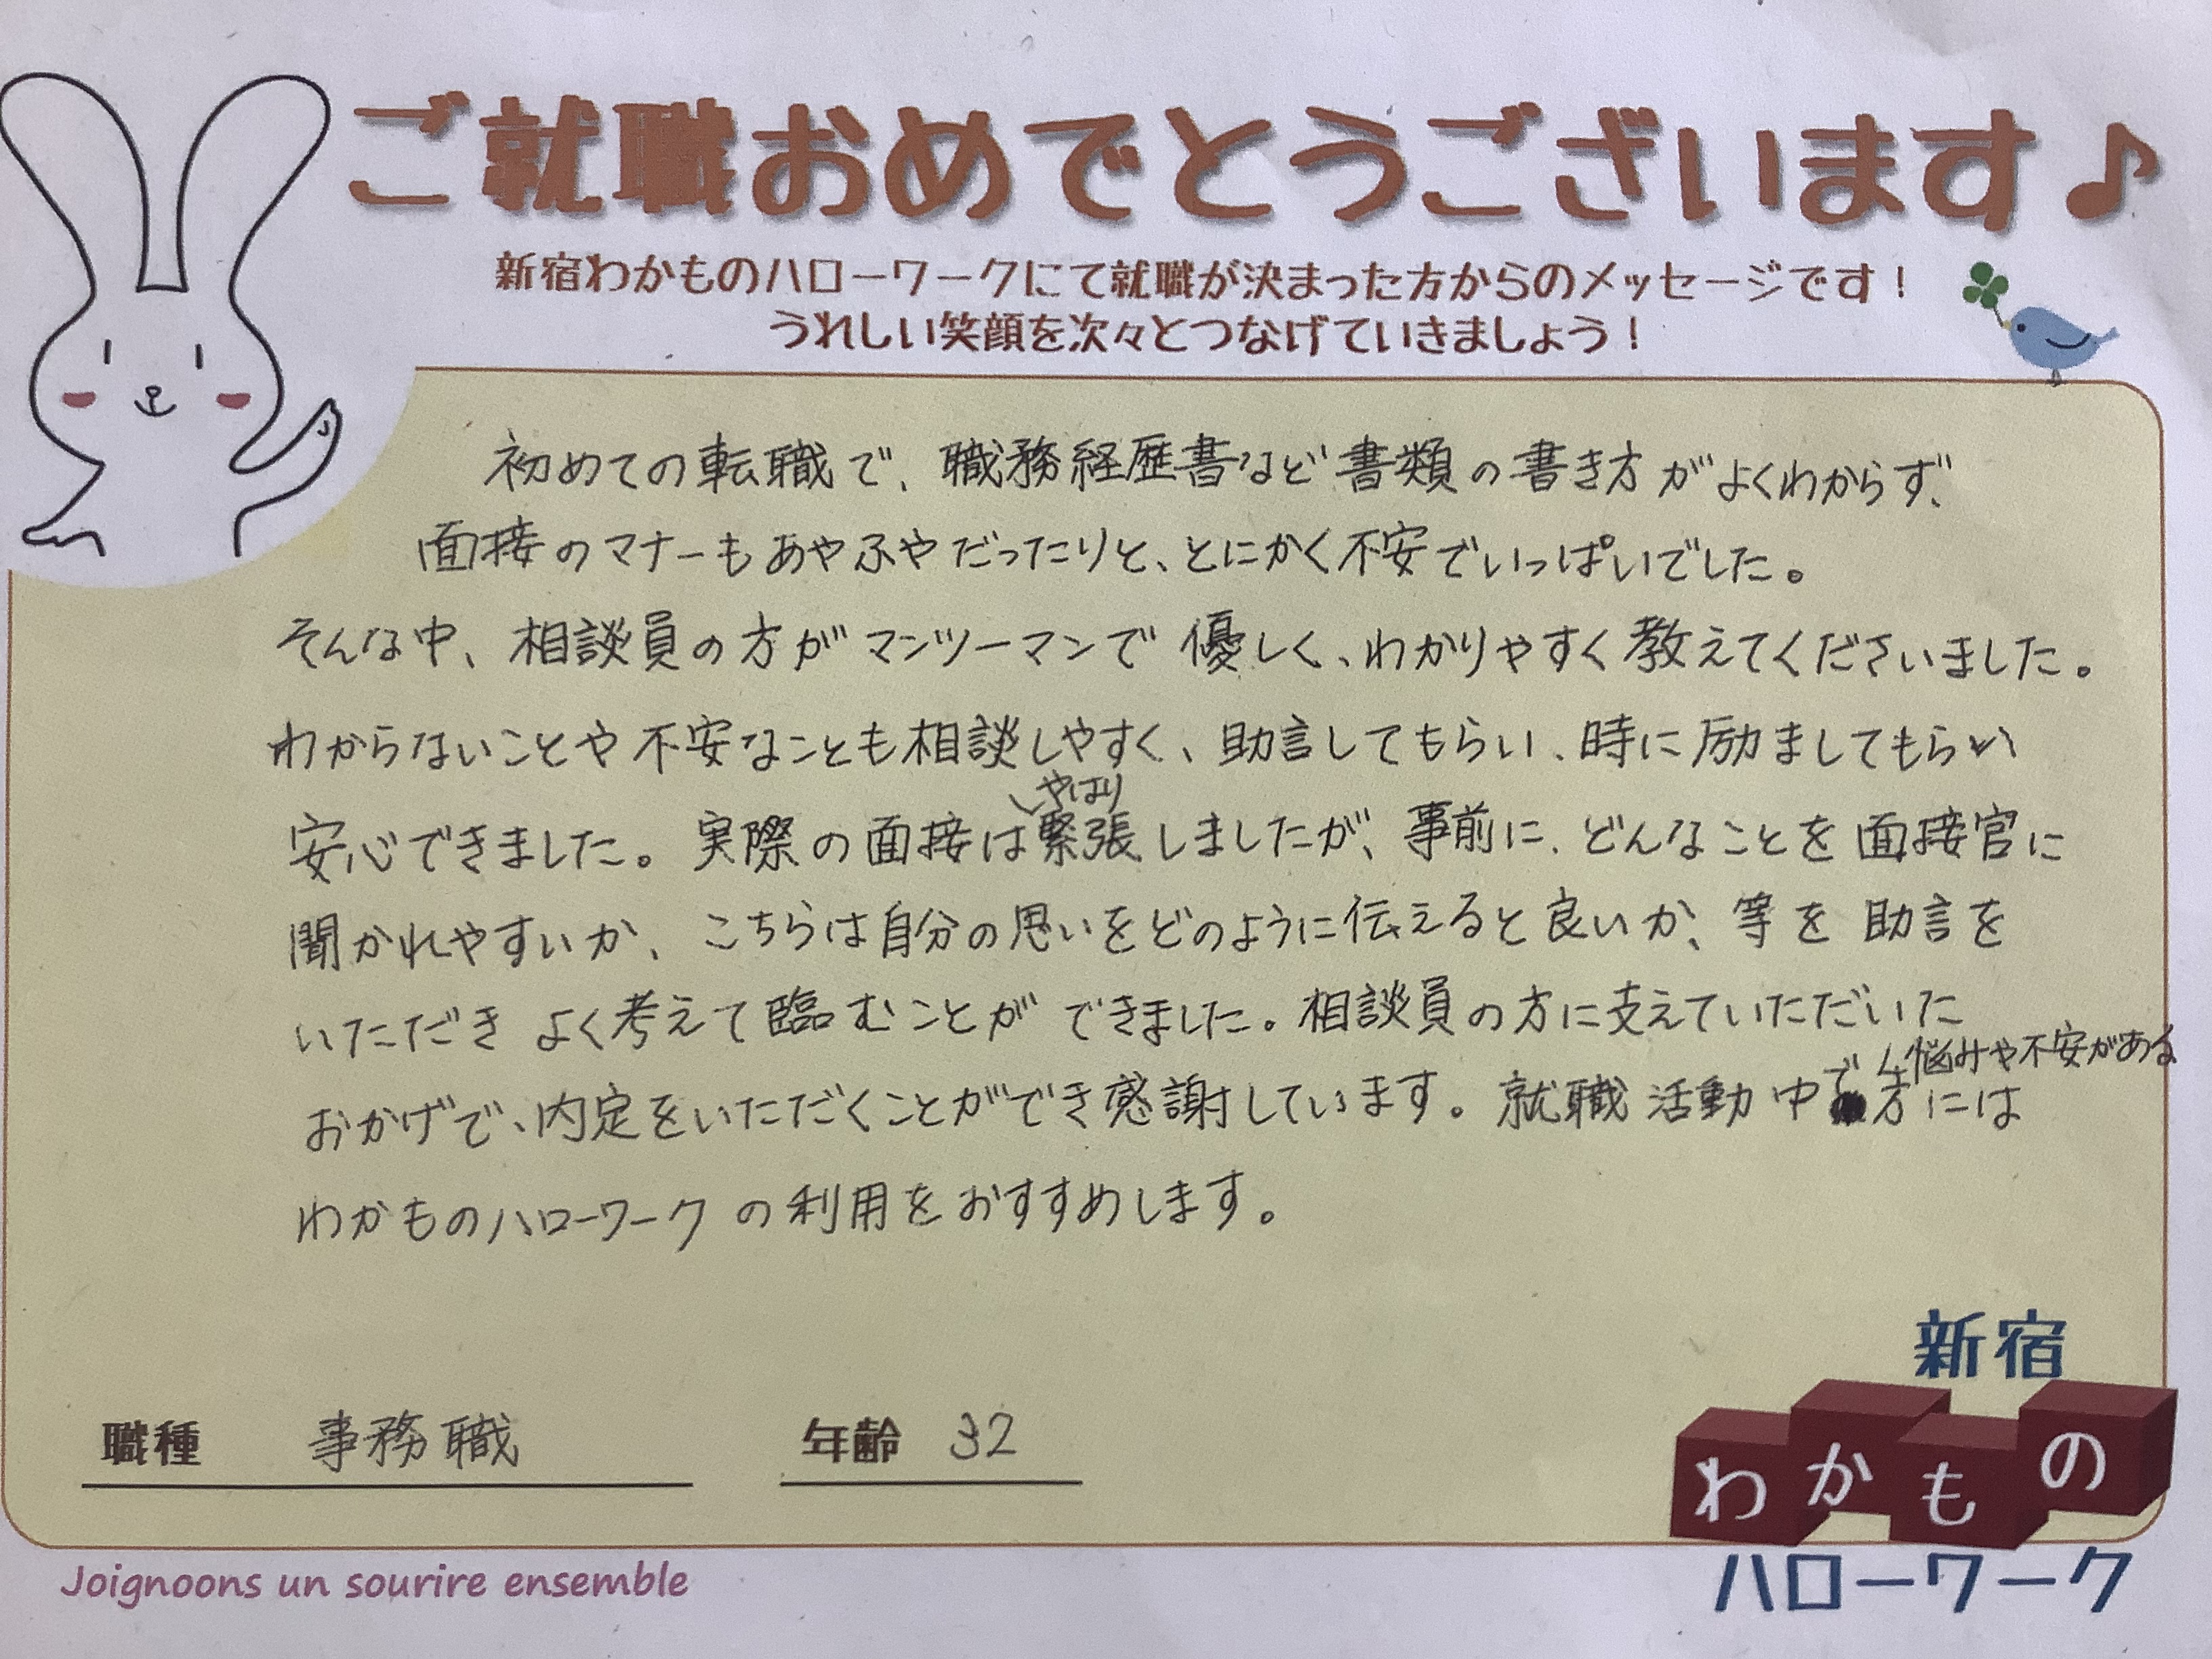 ご就職おめでとうございます♪
新宿わかものハローワークにて就職が決まった方からのメッセージです！
うれしい笑顔を次々とつなげていきましょう！
初めての転職で、職務経歴書など書類の書き方がよくわからず、
面接のマナーもあやふやだったりと、とにかく不安でいっぱいでした。
そんな中、相談員の方がマンツーマンで優しく、わかりやすく教えてくださいました。
わからないことや不安なことも相談しやすく、助言してもらい、時に励ましてもらい
安心できました。実際の面接はやはり緊張しましたが、事前に、どんなことを面接官に
聞かれやすいか、こちらは自分の思いをどのように伝えると良いか、等を助言を
いただきよく考えて臨むことができました。相談員の方に支えていただいた
おかげで、内定をいただくことができ感謝しています。就職活動中で悩みや不安がある方には
わかものハローワークの利用をおすすめします。
職種 事務職 年齢 32
新宿
わかもの
ハローワーク
Joignoons un sourire ensemble